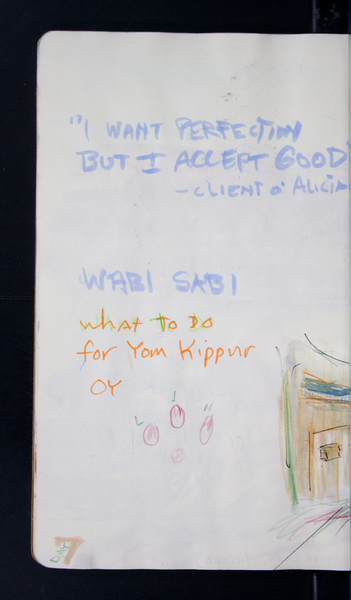 "I WANT PERFECTION
BUT I ACCEPT GOOD"
- CLIENT O' ALICIA
WABI SABI
what to do
for Yom Kippur
OY
DAY 7